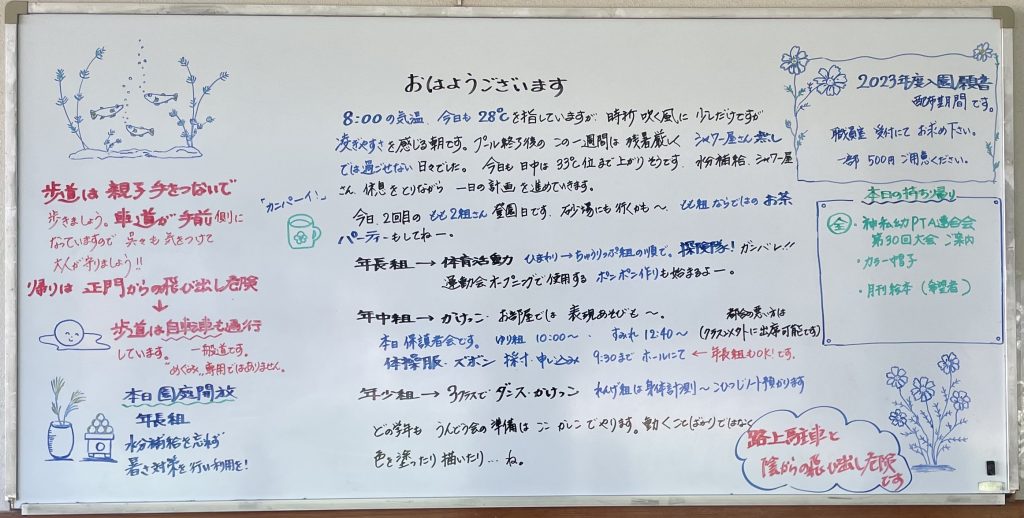 おはようございます
8:00の気温、今日も28℃を指していますが、時折吹く風に少しだけですが
凌ぎやすさを感じる朝です。プール終了後のこの一週間は残暑厳しく シャワー屋さん無し
では過ごせない日々でした。今日も日中は33℃位まで上がりそうです。水分補給、シャワー屋
さん、休息をとりながら 一日の計画を進めていきます。
「カンパーイ!」
今日、2回目の もも2組さん登園日です。砂場にも行くかも〜、もも組ならではのお茶
パーティーもしてねー。
年長組→体育活動 ひまわり→ちゅうりっぷ組の順で。探険隊!ガンバレ!!
運動会オープニングで使用する ポンポン作りも始まるよー。
年中組→かけっこ・お部屋では 表現あそびも〜。
本日保護者会です。ゆり組 10:00〜. すみれ 12:40〜
都合の悪い方は
(クラスメイトに出席可能です)
体操服・ズボン 採寸・申し込み 9:30まで ホールにて ←年長組もOK!です。
年少組→3クラスで ダンス・かけっこ れんげ組は身体計測〜こひつじノート預かります
どの学年も うんどう会の準備は ここかしこでやります。動くことばかりではなく
色を塗ったり描いたり…ね。
歩道は 親子手をつないで
歩きましょう。車道が手前側に
なっていますので 呉々も気をつけて
大人が守りましょう!!
帰りは 正門からの飛び出し危険
↓
歩道は自転車も通行
しています。一般道です。
"めぐみ"専用ではありません。
本日園庭開放
年長組
水分補給を忘れず
暑さ対策を行い利用を!
2023年度入園願書
配布期間です。
職員室 受付にて お求め下さい。
一部 500円ご用意ください。
本日の持ち帰り
全・神私幼PTA連合会
第30回大会ご案内
・カラー帽子
・月刊絵本(希望者)
路上駐車と
陰からの飛び出し危険
です